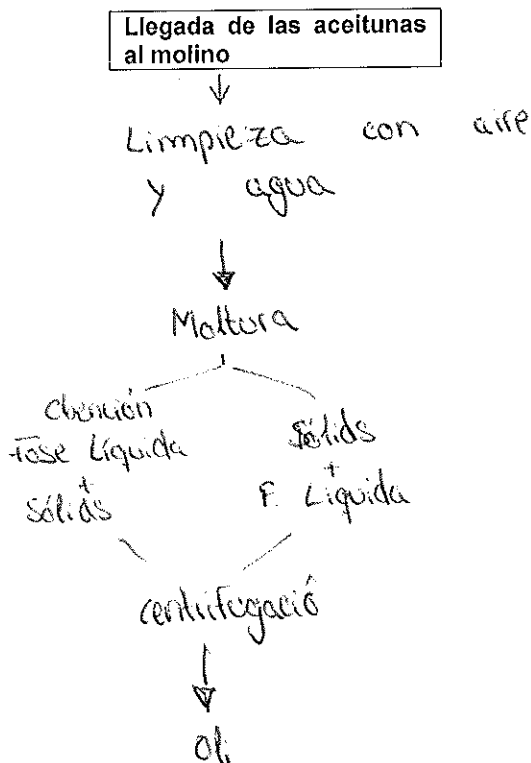 Llegada de las aceitunas
al molino
Limpieza con aire
y agua
Moltura
obención
Fase Líquida
+
Sólids
Sólids
+
F. Líquida
centrifugació
Oli